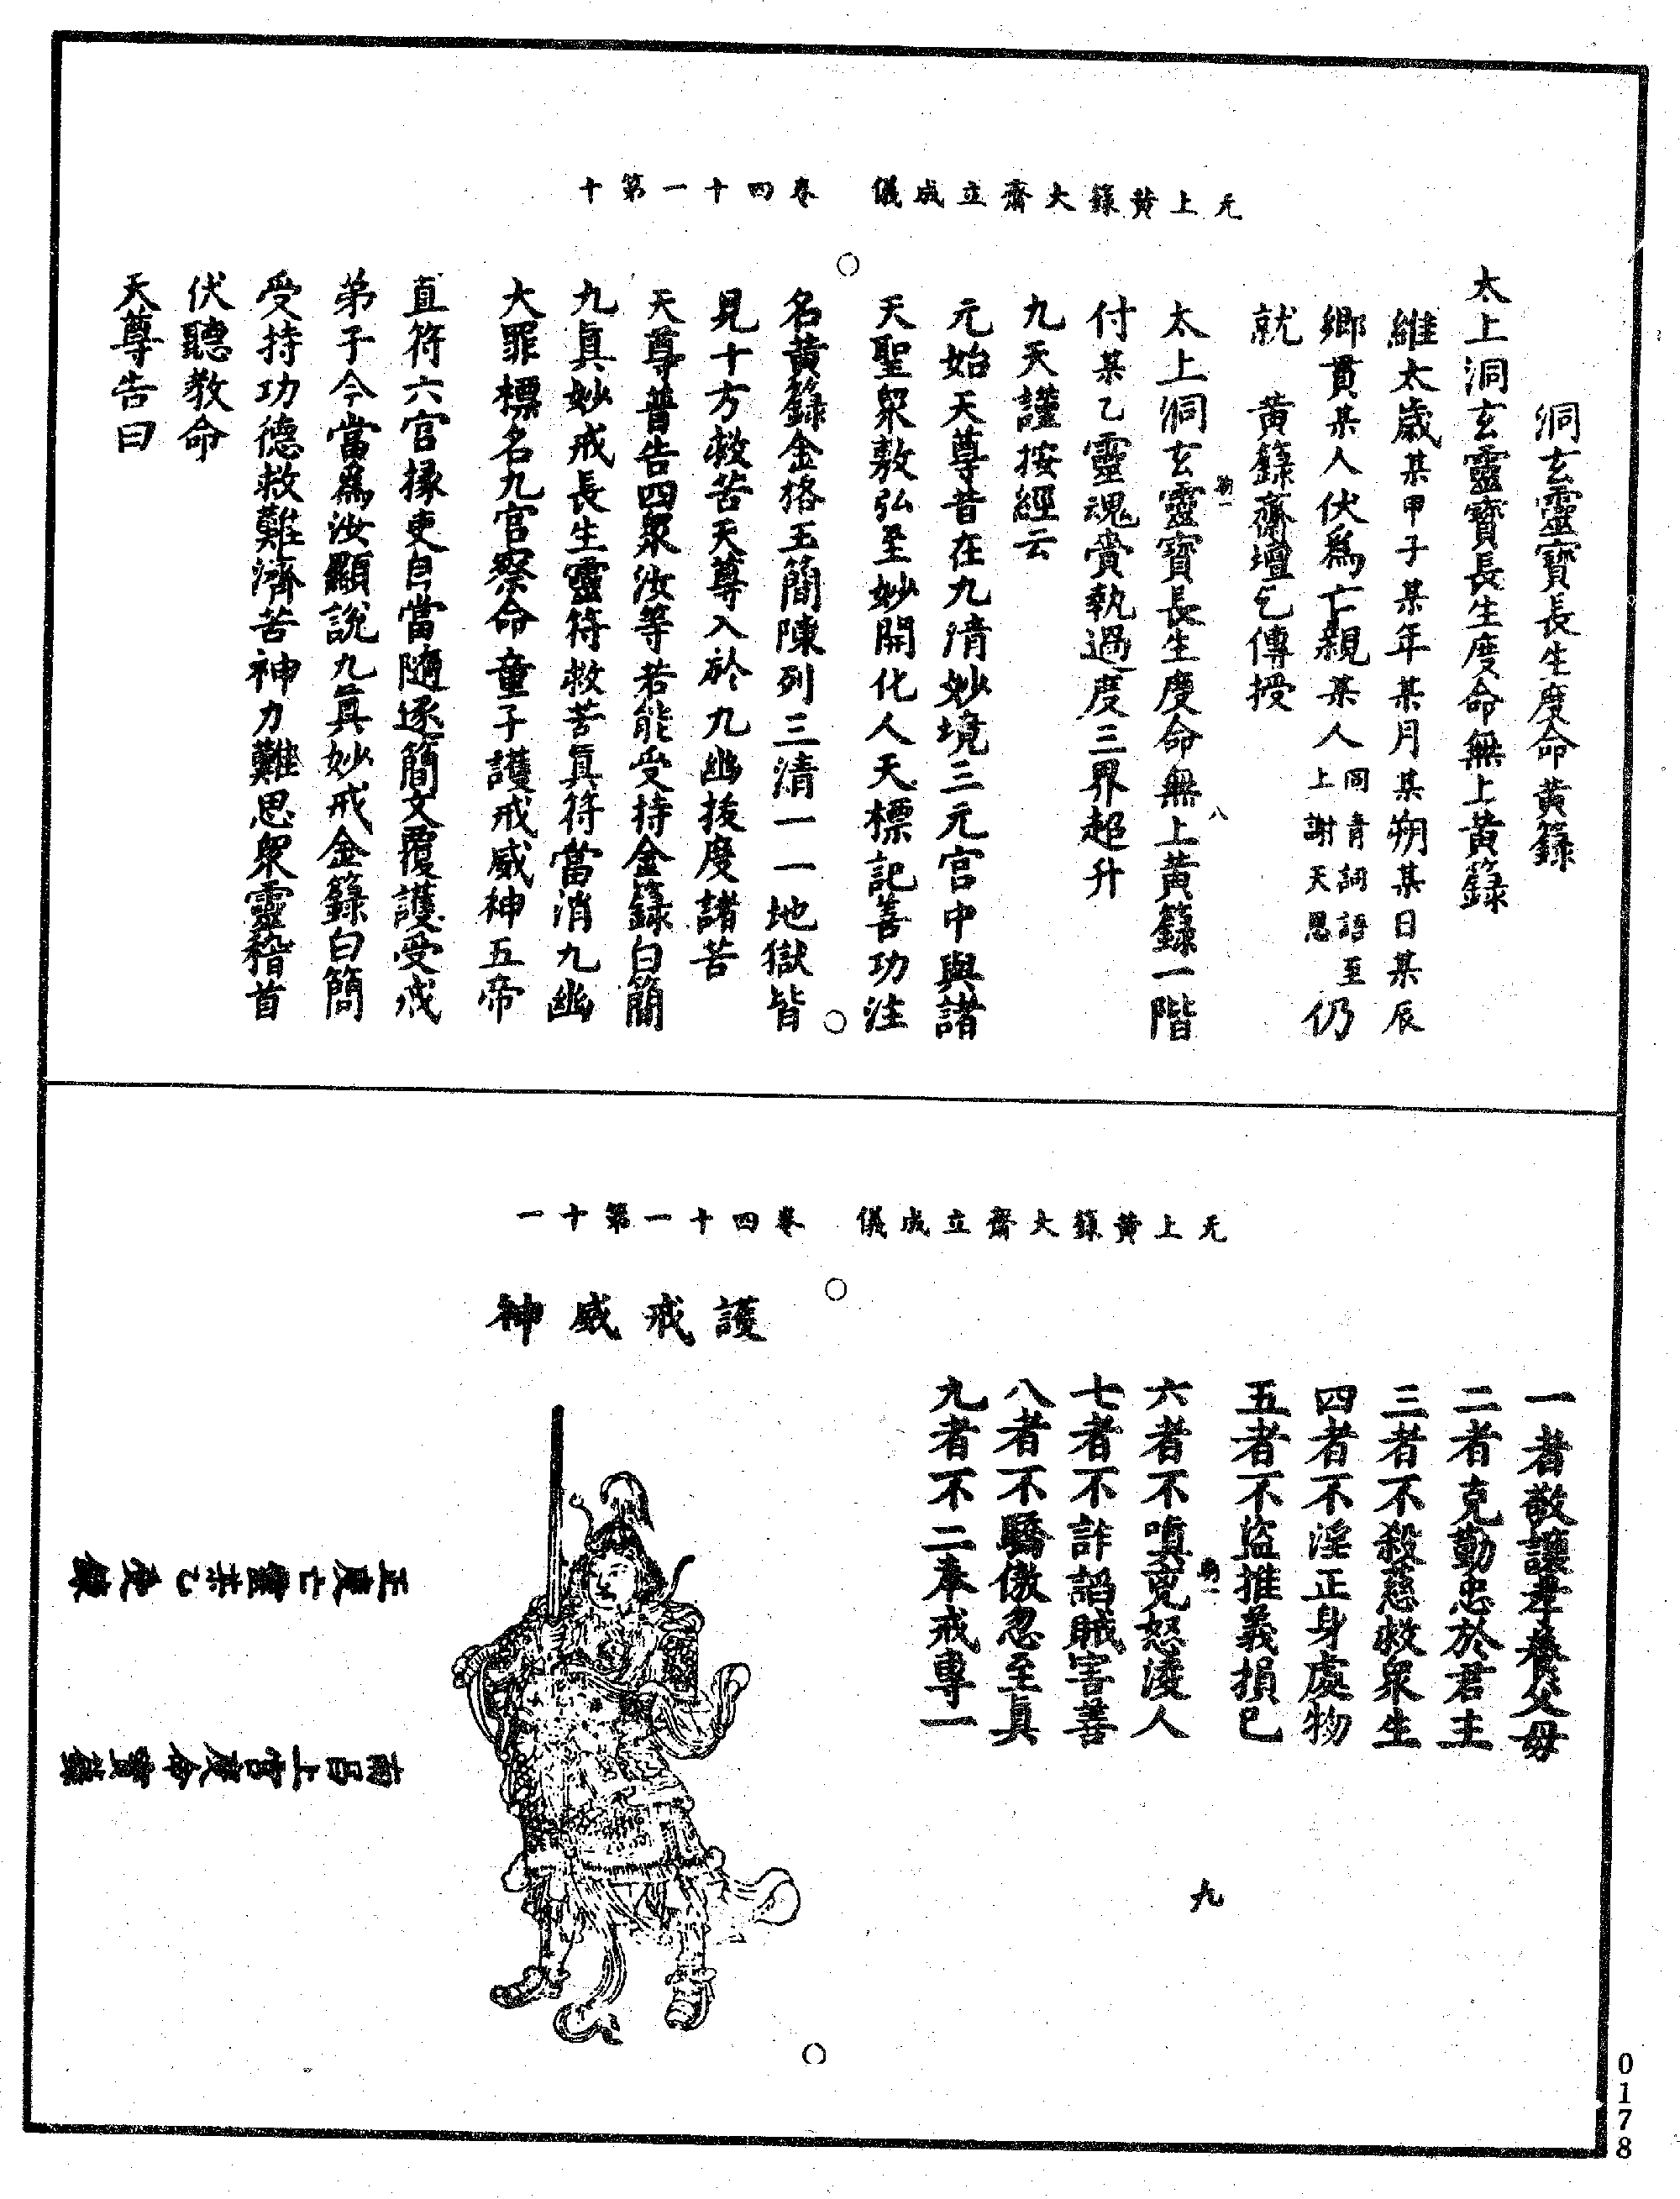 无上黃籙大齋立成儀　卷四十一第十
洞玄靈寶長生度命黃籙
太上洞玄靈寶長生度命無上黃籙
維太歲某甲子某年某月某朔某日某辰
鄉貫某人伏爲亡親某人同青詞語至上謝天恩仍
就　黃籙齋壇乞傳授
勑一　八
太上洞玄靈寶長生度命無上黃籙一階
付某乙靈魂賫執過度三界超升
九天謹按經云
元始天尊昔在九清妙境三元宮中與諸
天聖衆敷弘至妙開化人天標記善功注
名黃籙金格玉簡陳列三清一一地獄皆
見十方救苦天尊入於九幽拔度諸苦
天尊普告四衆汝等若能受持金籙白簡
九眞妙戒長生靈符救苦眞符當消九幽
大罪標名九宮察命童子護戒威神五帝
直符六宮掾吏自當隨逐簡文覆護受戒
弟子今當爲汝顯說九眞妙戒金籙白簡
受持功德救難濟苦神力難思衆靈稽首
伏聽教命
天尊告曰
无上黃籙大齋立成儀　卷四十一第十一
一者敬讓孝養父母
二者克勤忠於君主
三者不殺慈救衆生
四者不淫正身處物
五者不盜推義損己
勑一　九
六者不嗔兇怒淩人
七者不詐諂賊害善
八者不驕傲忽至眞
九者不二奉戒專一
護戒威神
正度亡靈某乙受籙
南昌上宮度命寶籙
0178